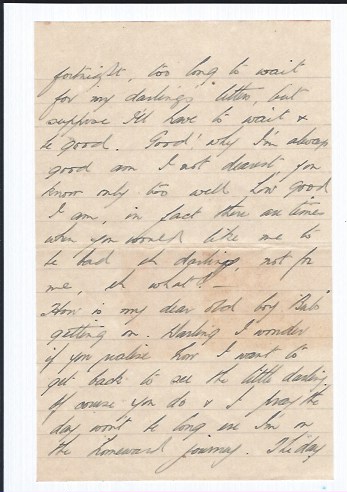 fortnight, too long to wait
for my darlings letters, but
suppose I'll have to wait &
be good. Good! why I'm always
good am I not dearest you
know only too well how good
I am, in fact there are times
when you would like me to
be bad eh darling, not for
me, eh what! —
How is my dear old boy Bab
getting on. Darling I wonder
if you realise how I want to
get back to see the little darling
of course you do & I pray the
day wont be long ere I'm on
the homeward journey. The day